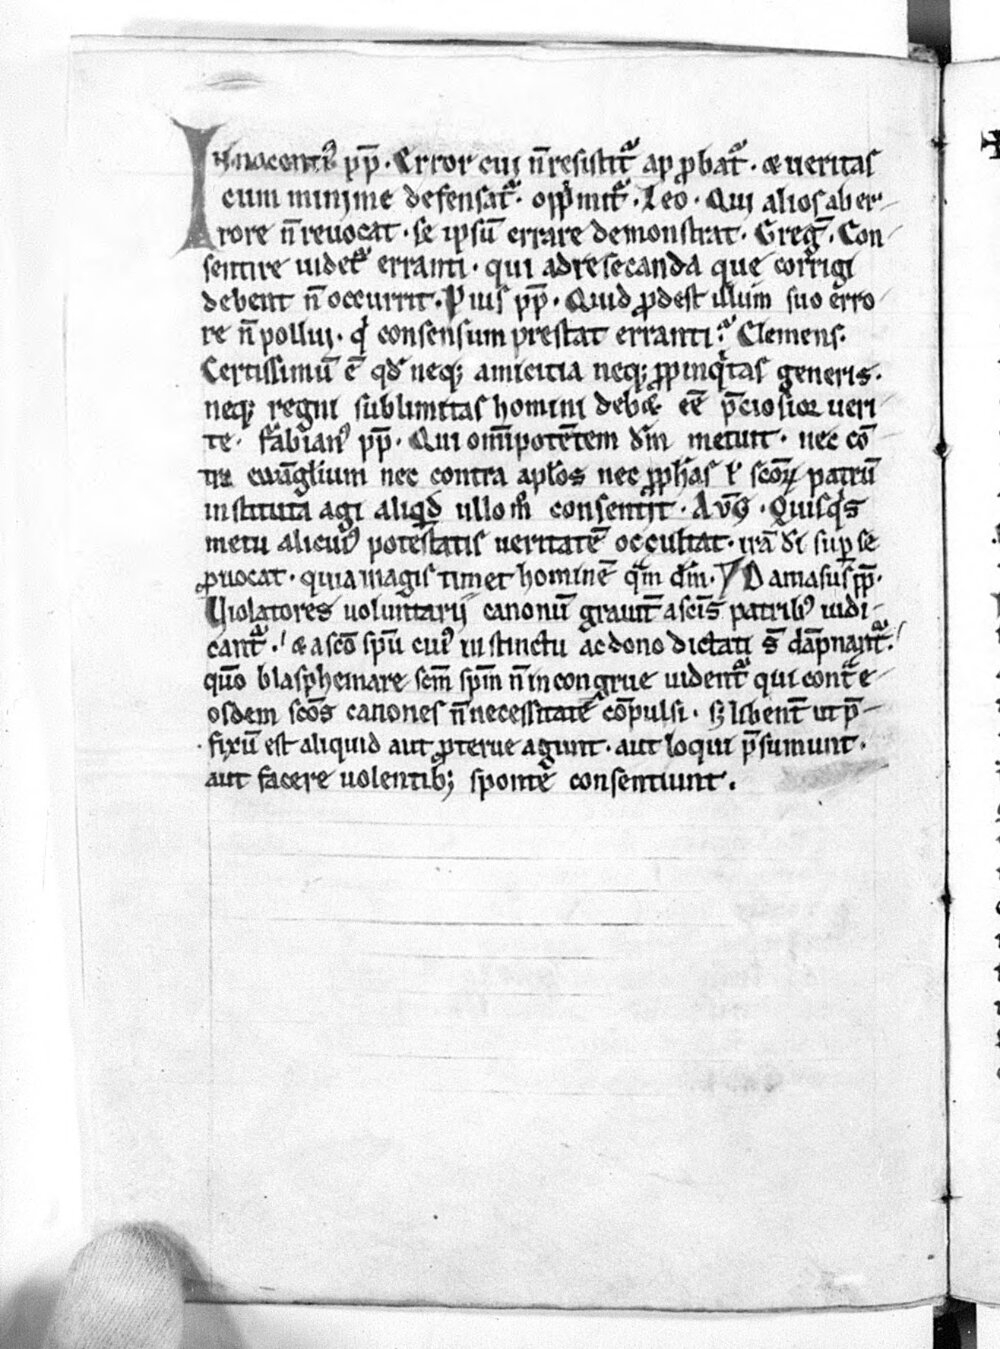 Innocentiꝰ pp̄. Error cui n̄ resistitᷓ approbatᷓ. & ueritas
cum minime defensatᷓ. opp̄mitᷓ. Leo. Qui alios ab er-
rore n̄ reuocat. se ipsū errare demonstrat. Greḡ. Con-
sentire uidetᷓ erranti. qui ad resecanda que corrigi
debent n̄ occurrit. Pius pp̄. Quid ꝓdest illum suo erro-
re n̄ pollui. qⁱ consensum prestat erranti? Clemens.
Certissimū ē qd̄ neq; amicitia neq; ꝓpinqⁱtas generis.
neq; regni sublimitas homini deb& eē p̄ciosior ueri-
te. Fabianꝰ pp̄. Qui omīpotētem dm̄ metuit. nec cō-
tra ewāglium nec contra apłos nec ꝓph̄as ł scōꝝ patrū
instituta agi aliqⁱd ullo mº consentit. Aūg. Quisqⁱs
metu alicuiꝰ potestatis ueritatē occultat. irā di sup̱ se
ꝓuocat. quia magis timet hominē qᷓm dm̄. Damasus pp̄.
Uiolatores uoluntarii canonū grauit̄ a scīs patribꝰ iudi-
cantᷓ. & a scō spū cuiꝰ instinctu ac dono dictati s̄ dāpnantᷓ.
qm̄o blasphemare scm̄ spm̄ n̄ incongrue uidentᷓ qui contᷓ e-
osdem scōs canones n̄ necessitate cōpulsi. sꝫ libent̄ ut p̄-
fixū est aliquid aut ꝓterue agunt. aut loqui p̄sumunt.
aut facere uolentib; sponte consentiunt.